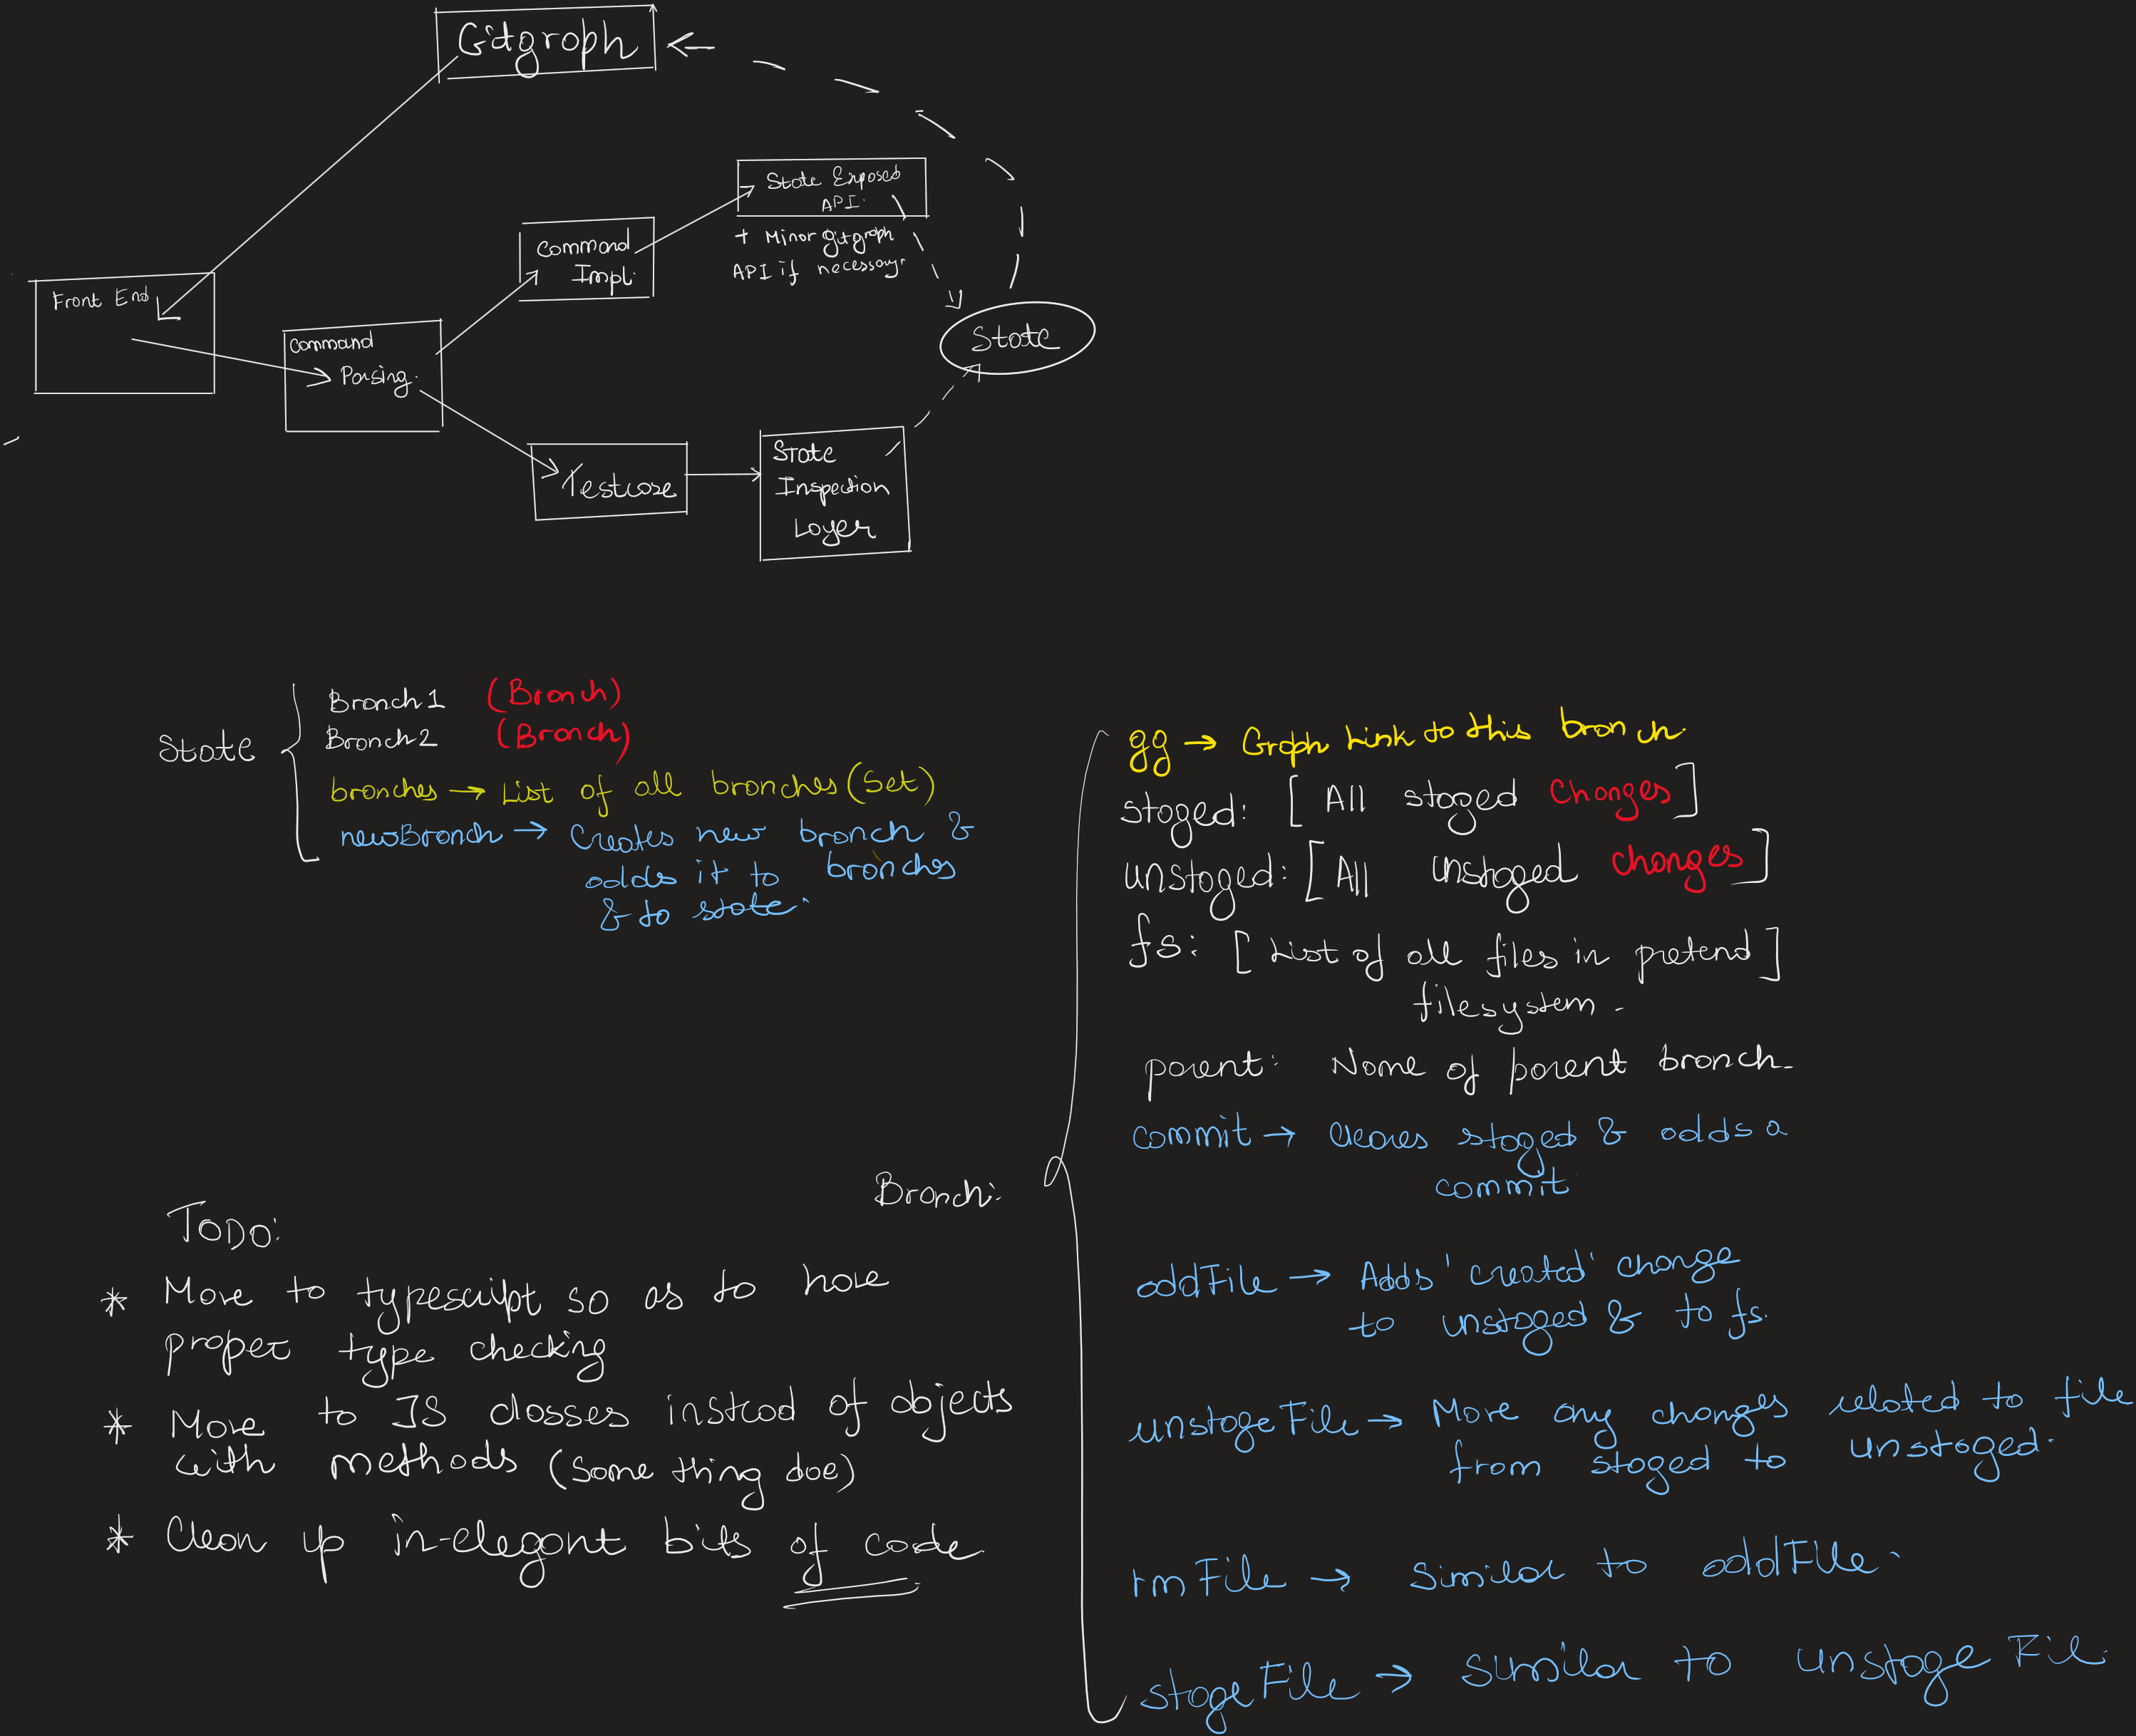 Gitgraph
State Exposed
API.
+ Minor gitgraph
API if necessary.
Command
Impl.
Front End
Command
Parsing.
State
Testcase
State
Inspection
Layer
State
Branch1 (Branch)
Branch2 (Branch)
branches → List of all branches (Set)
newBranch → Creates new branch &
adds it to branches
& to state.
Branch:
gg → Graph Link to this branch.
staged: [All staged changes]
unstaged: [All unstaged changes]
fs: [List of all files in pretend]
filesystem.
parent: Name of parent branch.
commit → clears staged & adds a
commit
addFile → Adds 'created' change
to unstaged & to fs.
unstageFile → Move any changes related to file
from staged to unstaged.
rmFile → Similar to addFile.
stageFile → Similar to unstage File.
TODO:
* Move to typescript so as to have
proper type checking
* Move to JS classes instead of objects
with methods (Same thing doe)
* Clean up in-elegant bits of code